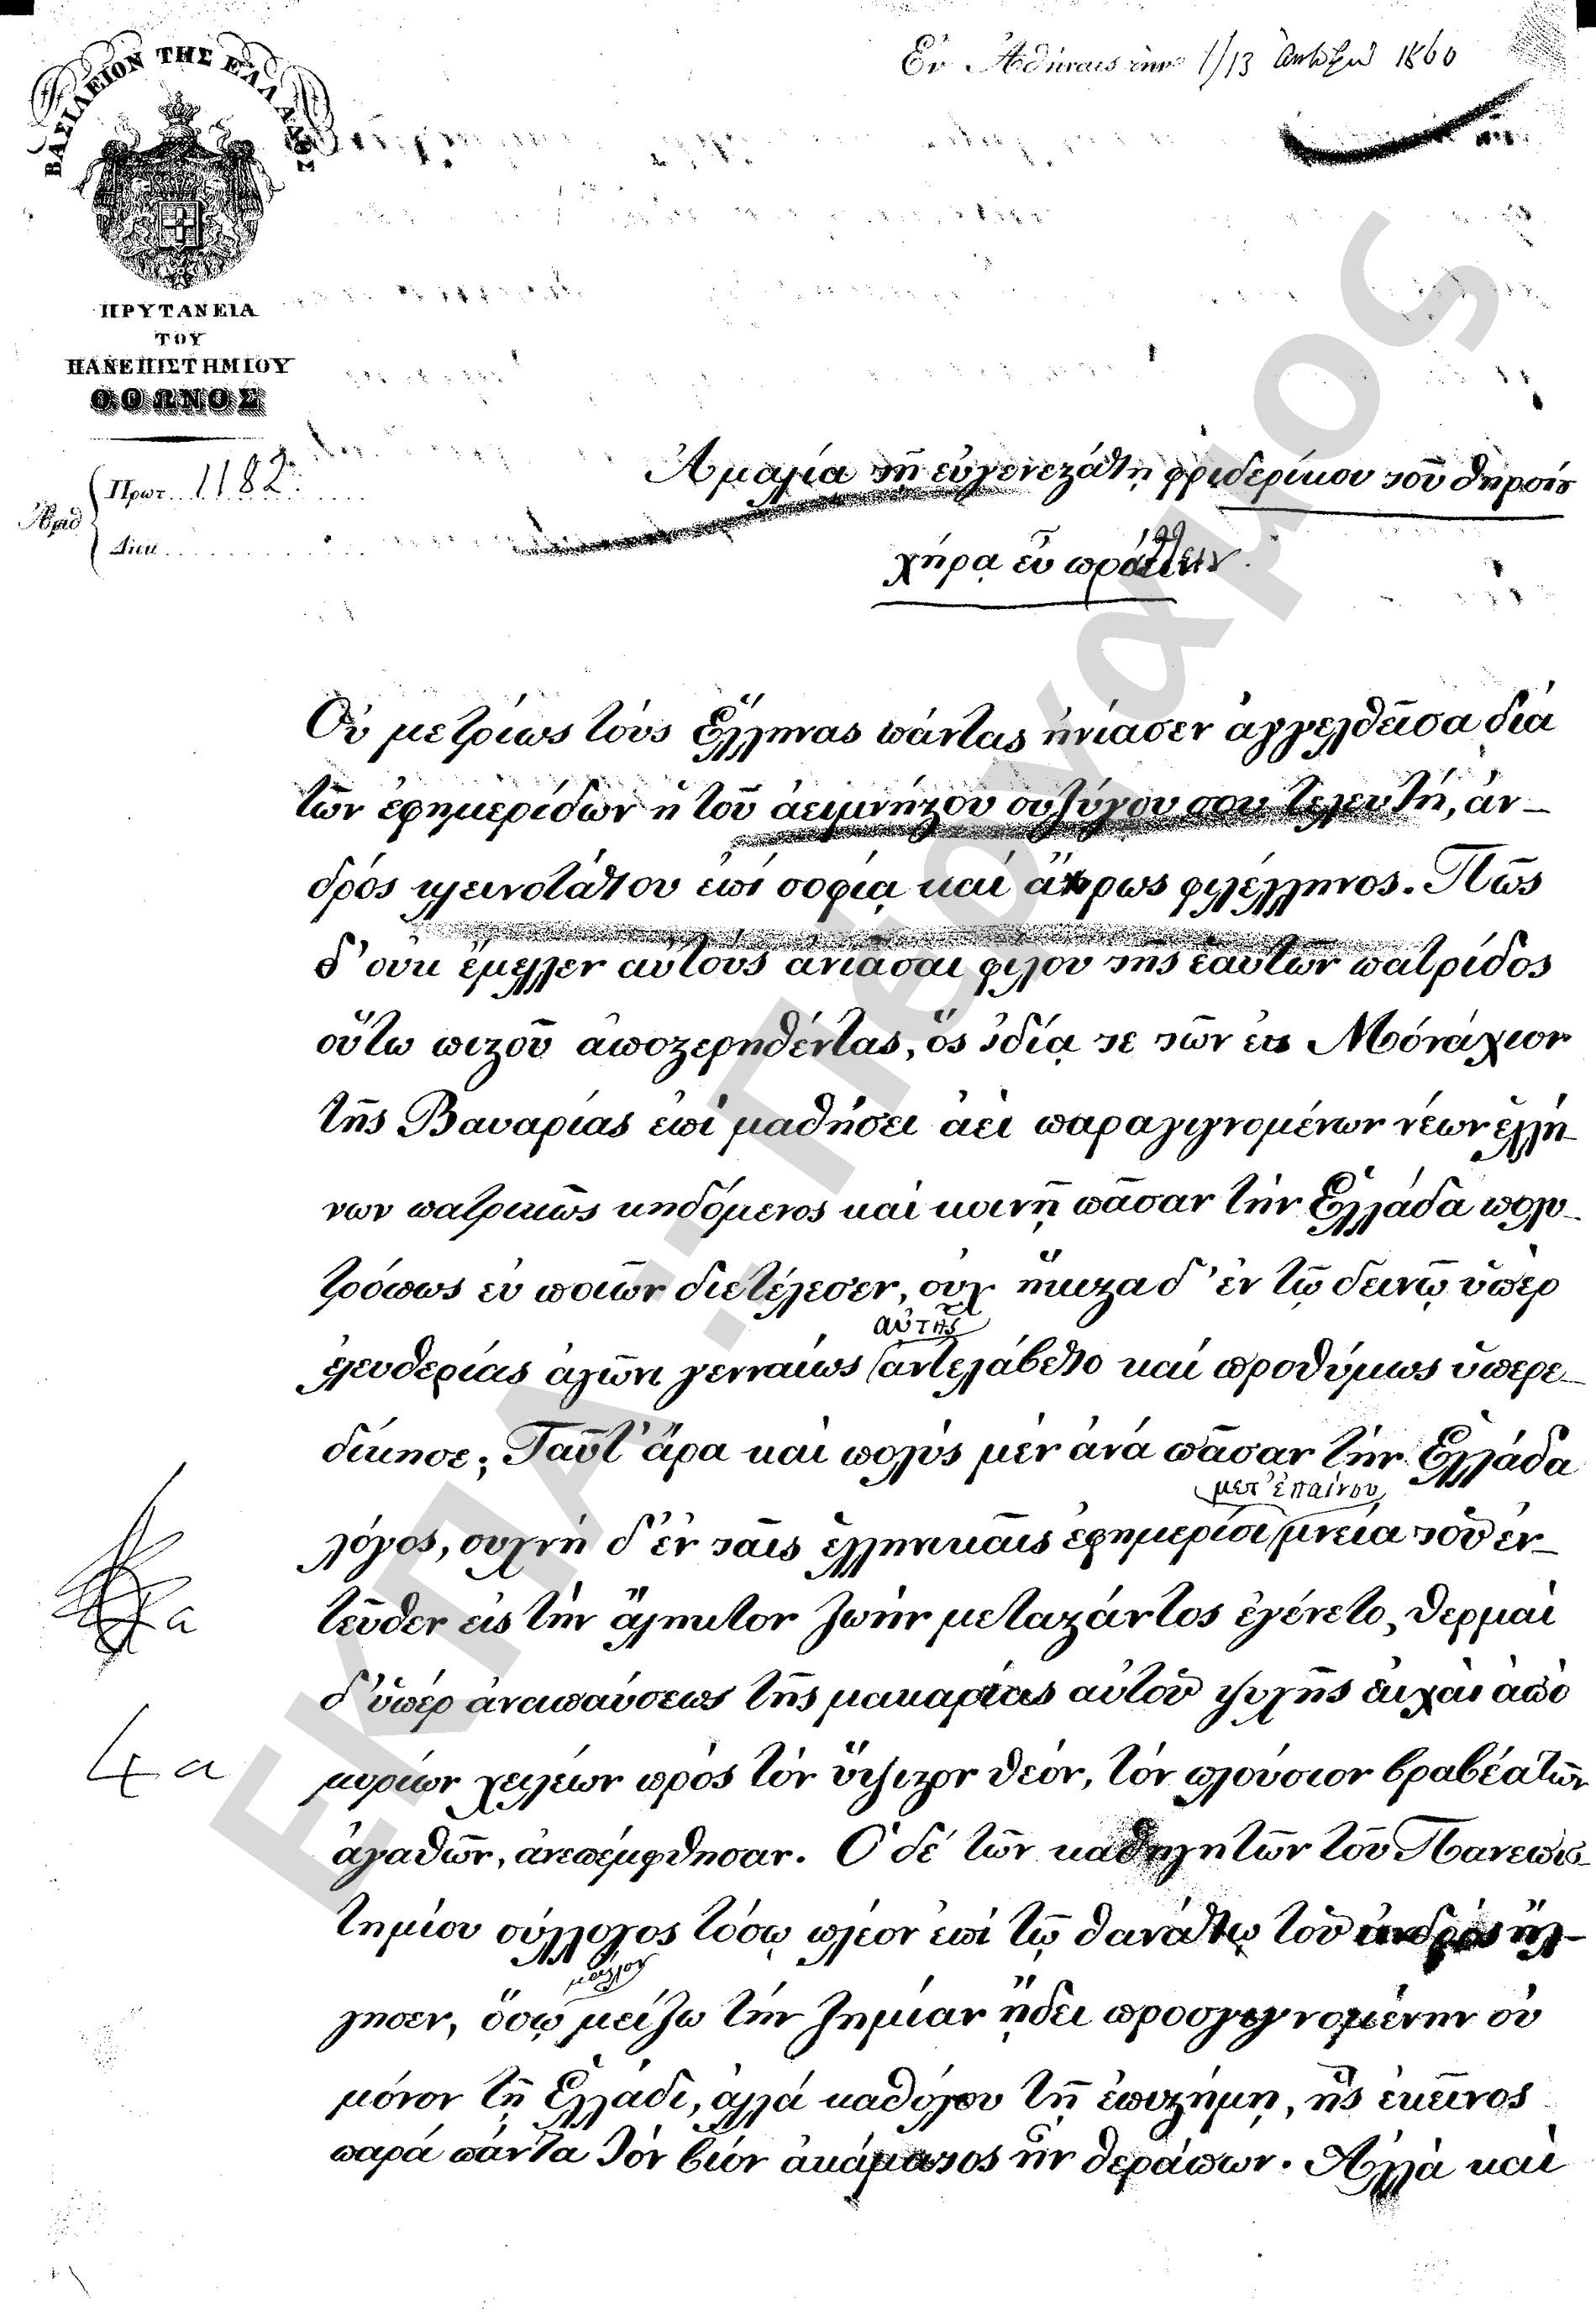 Ἐν Ἀθήναις τὴν 1/13 1860
ΒΑΣΙΛΕΙΟΝ ΤΗΣ ΕΛΛΑΔΟΣ
ΠΡΥΤΑΝΕΙΑ
ΤΟΥ
ΠΑΝΕΠΙΣΤΗΜΙΟΥ
ΟΘΩΝΟΣ
Ἀριθ
Πρωτ. 1182.
Διεκ
Ἀμαλίᾳ τῇ εὐγενεστάτῃ φριδερίκου τοῦ θηρσίου
χήρᾳ εὖ πράττειν.
Οὐ μετρίως τούς Ἕλληνας πάντας ἠνίασεν ἀγγελθεῖσα διά
τῶν ἐφημερίδων ἡ τοῦ ἀειμνήστου συζύγου σου τελευτή, ἀν-
δρός κλεινοτάτου ἐπί σοφίᾳ καί ἄκρως φιλέλληνος. Πῶς
δ' οὐκ ἔμελλεν αὐτούς ἀνιᾶσαι φίλου τῆς ἑαυτῶν πατρίδος
οὕτω πιστοῦ ἀποστερηθέντας, ὅς ἰδίᾳ τε τῶν εἰς Μόναχιον
τῆς Βαυαρίας ἐπί μαθήσει ἀεί παραγιγνομένων νέων ἑλλή-
νων πατρικῶς κηδόμενος καί κοινῇ πᾶσαν τήν Ἑλλάδα πολυ-
τρόπως εὐ ποιῶν διετέλεσεν, οὐχ ἥκιστα δ' ἐν τῷ δεινῷ ὑπέρ
αὐτῆς
ἐλευθερίας ἀγῶνι γενναίως ἀντελάβετο καί προθύμως ὑπερε-
δίκησε; Ταῦτ' ἄρα καί πολύς μέν ἀνά πᾶσαν τήν Ἑλλάδα
μετ' ἐπαίνου
λόγος, συχνή δ' ἐν ταῖς ἑλληνικαῖς ἐφημερίσι μνεία τοῦ ἐν-
τεῦθεν εἰς τήν ἄληκτον ζωήν μεταστάντος ἐγένετο, θερμαί
a
δ' ὑπέρ ἀναπαύσεως τῆς μακαρίας αὐτοῦ ψυχῆς εὐχαί ἀπό
4a
μυρίων χειλέων πρός τόν ὕψιστον θεόν, τόν πλούσιον βραβέα τῶν
ἀγαθῶν, ἀνεπέμφθησαν. Ὁ δέ τῶν καθηγητῶν τοῦ Πανεπισ-
τημίου σύλλογος τόσῳ πλέον ἐπί τῷ θανάτῳ τοῦ ἀνδρός ἤλ-
μᾶλλον
γησεν, ὅσῳ μείζω τήν ζημίαν ᾔδει προσγιγνομένην οὐ
μόνον τῇ Ἑλλάδι, ἀλλά καθόλου τῇ ἐπιστήμῃ, ἧς ἐκεῖνος
παρά πάντα τόν βίον ἀκάματος ἦν θεράπων. Ἀλλά καί
ΕΚΠΑ "Πέργαμος